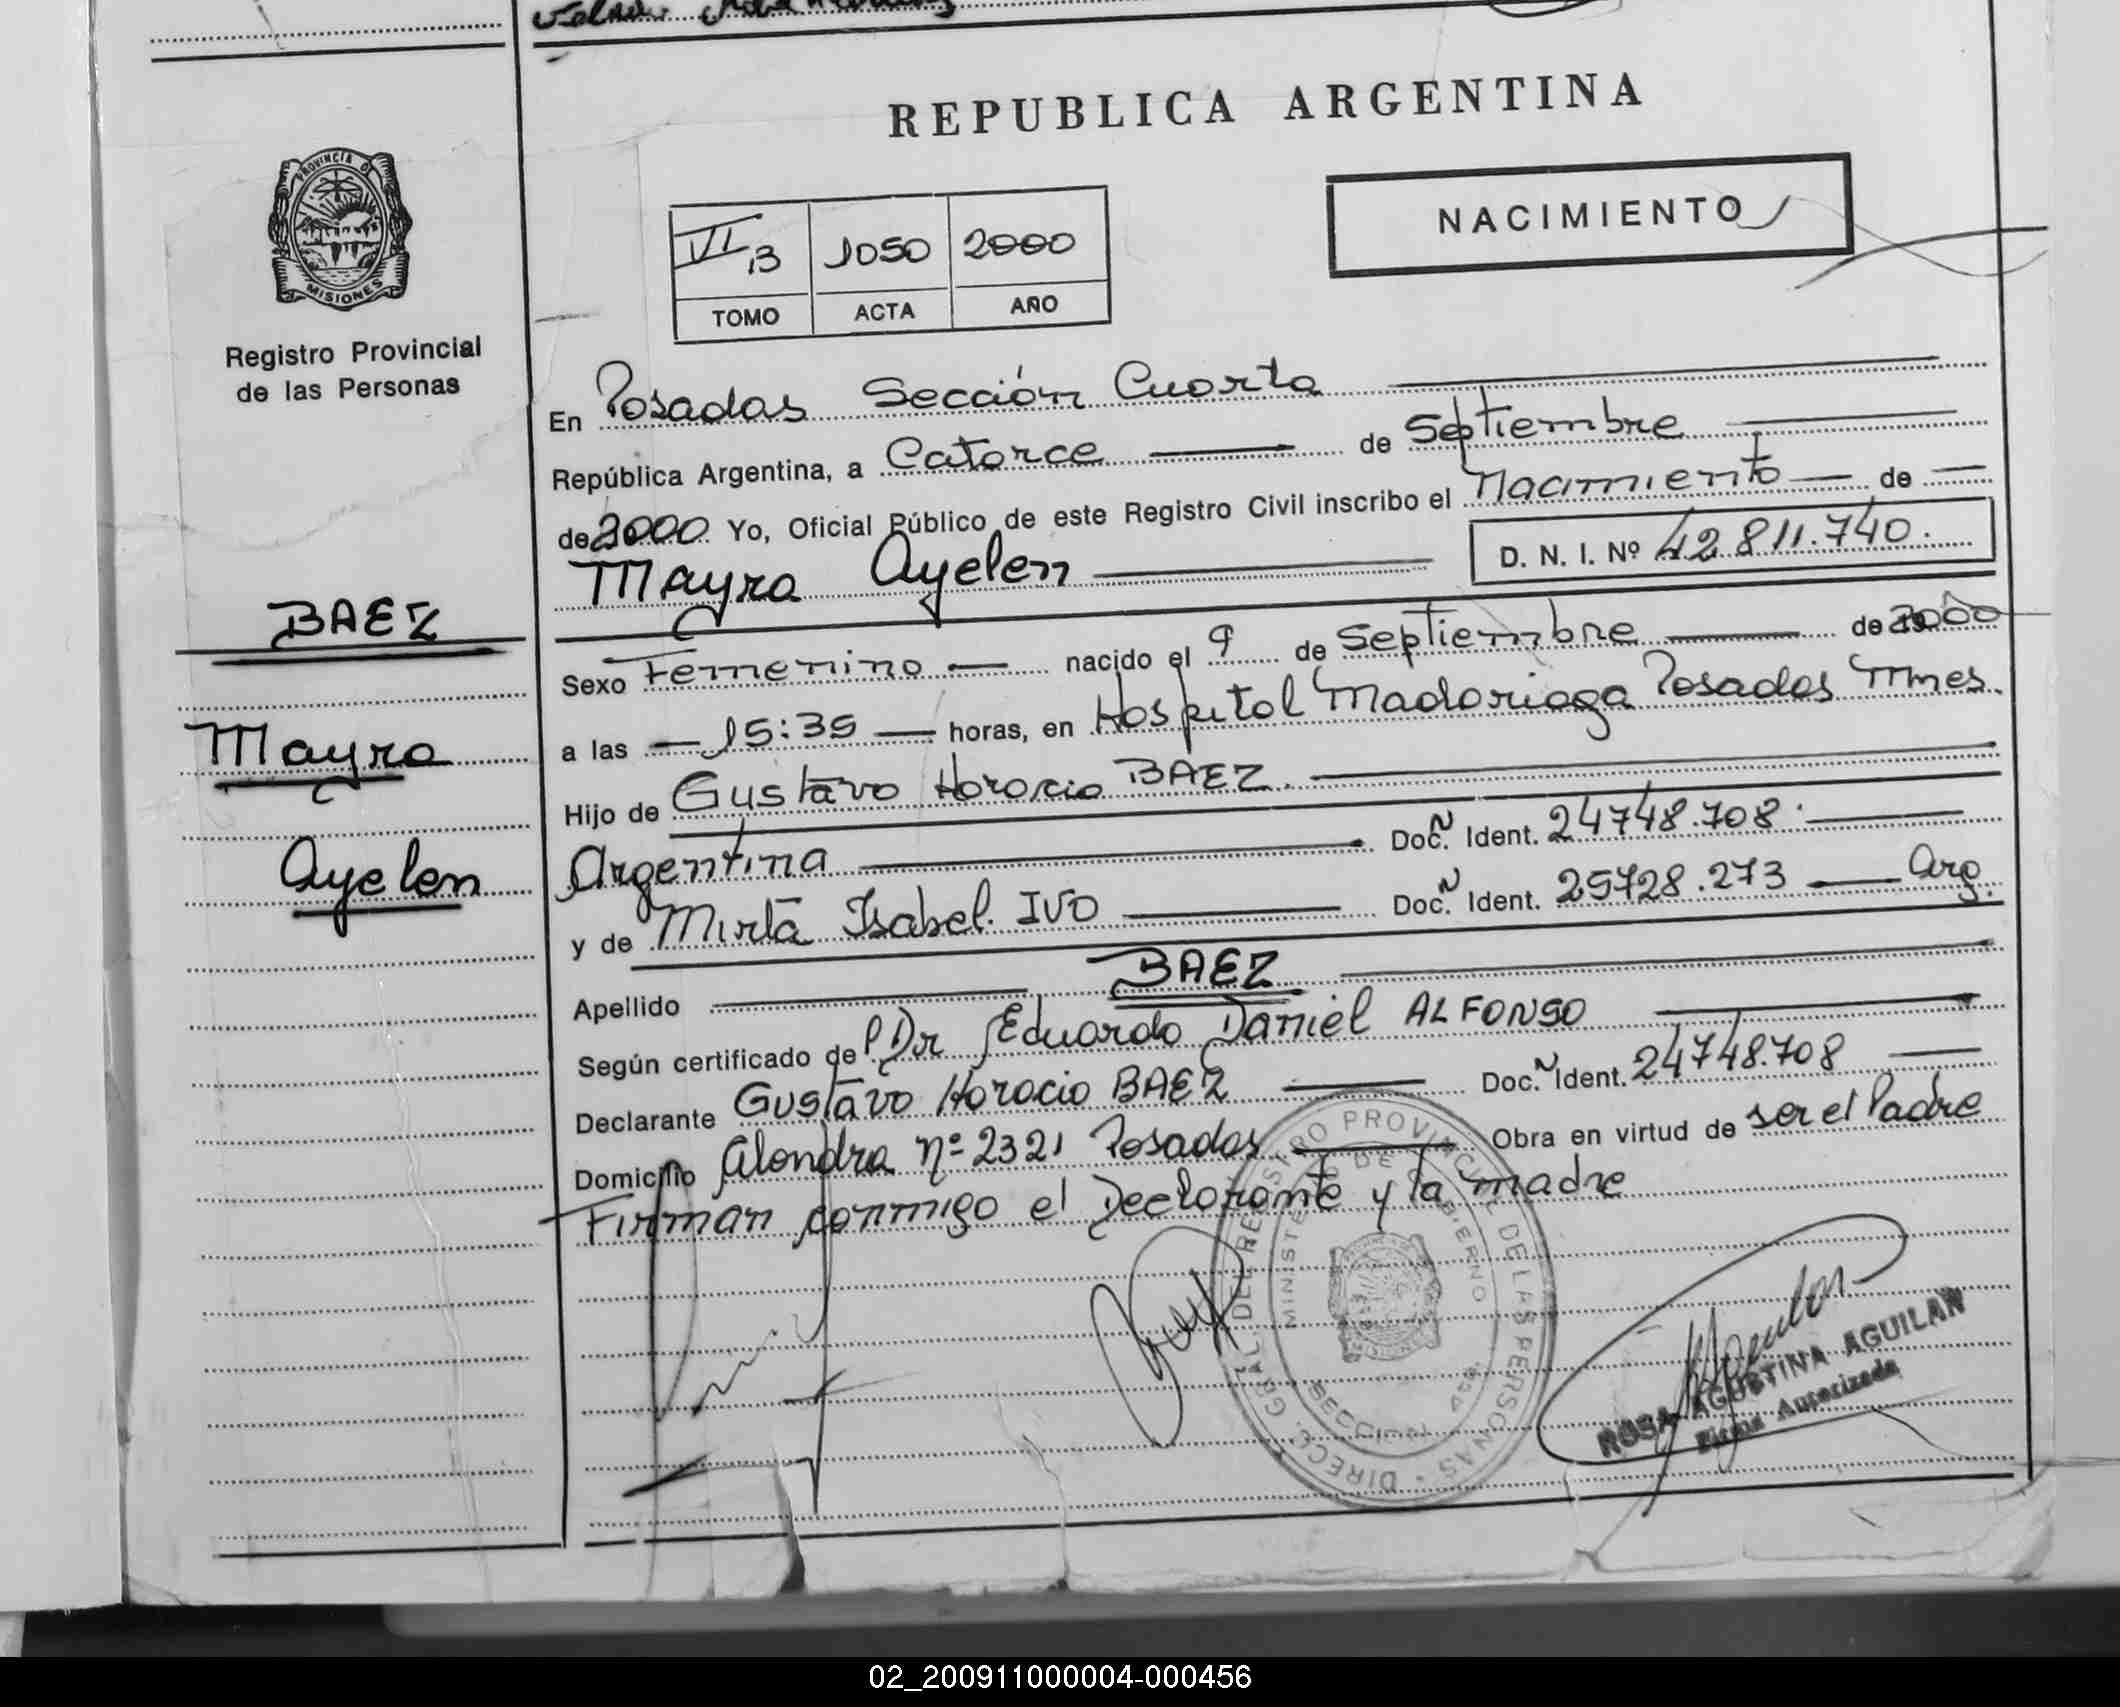 REPUBLICA ARGENTINA
NACIMIENTO
VI 13 1050 2000
TOMO ACTA AÑO
PROVINCIA DE MISIONES
Registro Provincial
de las Personas
BAEZ
Mayra
Ayelen
En Posadas Sección Cuarta
República Argentina, a Catorce de Septiembre
de 2000 Yo, Oficial Público de este Registro Civil inscribo el Nacimiento de
Mayra Ayelen D. N. I. Nº 42.811.740.
Sexo Femenino nacido el 9 de Septiembre de 2000
a las 15:35 horas, en Hospital Madariaga Posadas Mnes.
Hijo de Gustavo Horacio BAEZ.
Argentina Doc. Ident. 24748.708.
y de Mirta Isabel. IVO Doc. Ident. 25728.273 Arg.
Apellido BAEZ
Según certificado de Dr Eduardo Daniel ALFONSO
Declarante Gustavo Horacio BAEZ Doc. Ident. 24748.708
Domicilio Alondra nº 2321 Posadas Obra en virtud de ser el Padre
Firman conmigo el Declarante y la madre
DIRECC. GRAL. DEL REGISTRO PROVINCIAL DE LAS PERSONAS
MINISTERIO DE GOBIERNO
SECCION 4ta.
MISIONES
ROSA AGUSTINA AGUILAR
Firma Autorizada
02_200911000004-000456